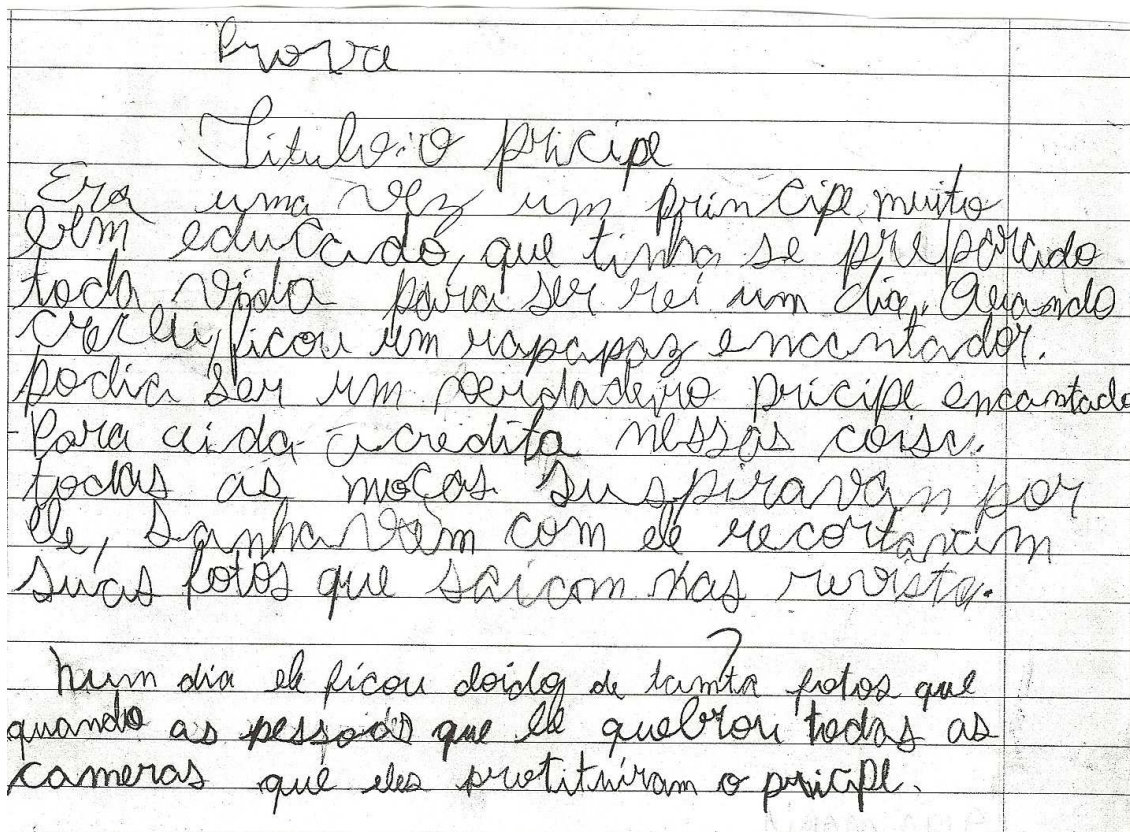 Prova
Titulo: O pricipe
Era uma vez um principe, muito
bem educado, que tinha se preparado
toda vida para ser rei um dia. Quando
creceu, ficou um rapapaz encantador.
podia ser um verdadeiro pricipe encantado
Para aida acredita nessas coisa.
todas as moças suspiravan por
ele, sanhavam com ele recortavam
suas fotos que saicom nas revista.
?
num dia ele ficou doido de tamta fotos que
quando as pessoas que ele quebrou todas as
cameras que eles protituiram o pricipe.